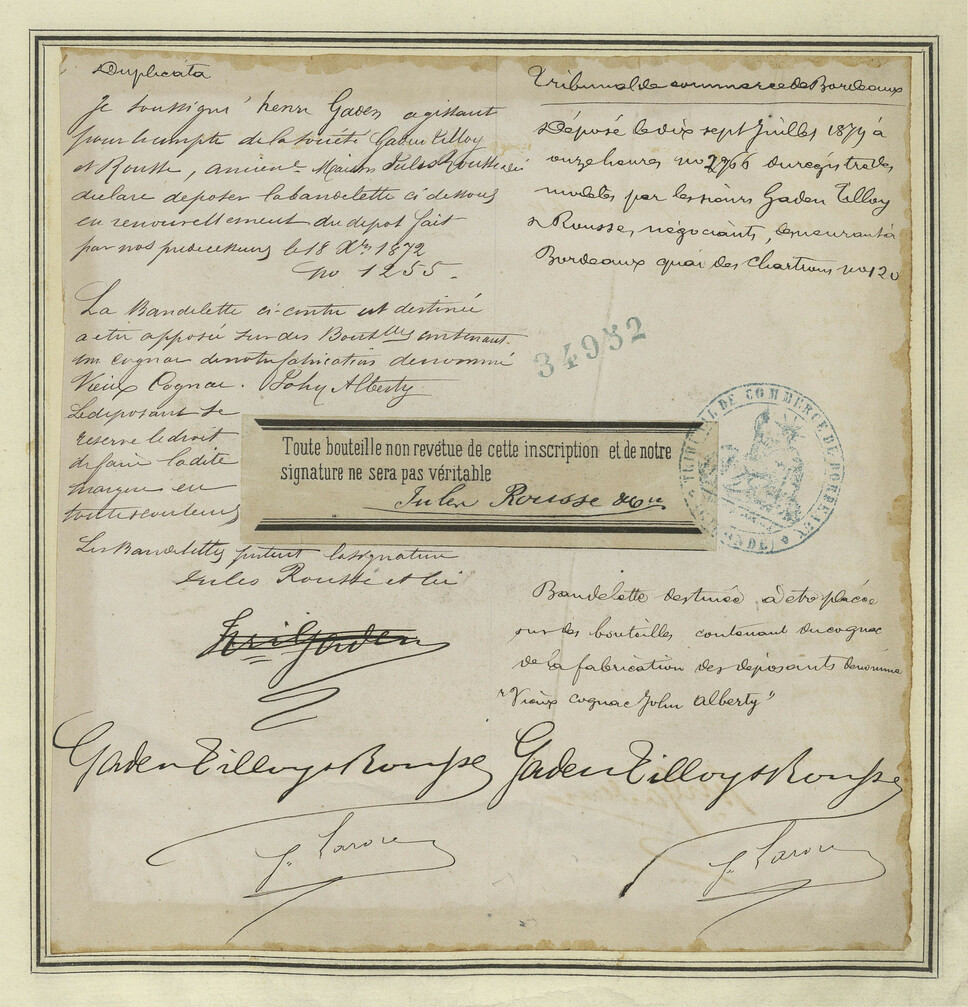 Duplicata
Je soussigné henri Gaden agissant
pour le compte de la société Gaden Tilloy
et Rousse, ancienne Maison Jules Rousse
declare deposer la bandelette ci dessous
en renouvellement du depot fait
par nos predecesseurs le 18 Xbre 1872
no 1255.
La Bandelette ci-contre est destinée
a etre apposée sur des Boutlles contenant
un cognac de notre fabrication denommé
Vieux Cognac. John Alberty
Le deposant se
reserve le droit
de faire la dite
marque en
toutes couleurs
Les Bandelettes portent la signature
Jules Rousse et Cie
Hri Gaden
Gaden Tilloy & Rousse
Tribunal de commerce de Bordeaux
Déposé le dix sept Juillet 1879 à
onze heures no 2966 du registre des
modeles par les sieurs Gaden Tilloy
& Rousse, négociants, demeurant à
Bordeaux quai des Chartrons no 120
34932
Toute bouteille non revétue de cette inscription et de notre
signature ne sera pas véritable
Jules Rousse & Cie
TRIBUNAL DE COMMERCE DE BORDEAUX
(GIRONDE)
Bandelette destinée à etre placée
sur des bouteilles contenant du cognac
de la fabrication des deposants denommé
"Vieux cognac John Alberty"
Gaden Tilloy & Rousse